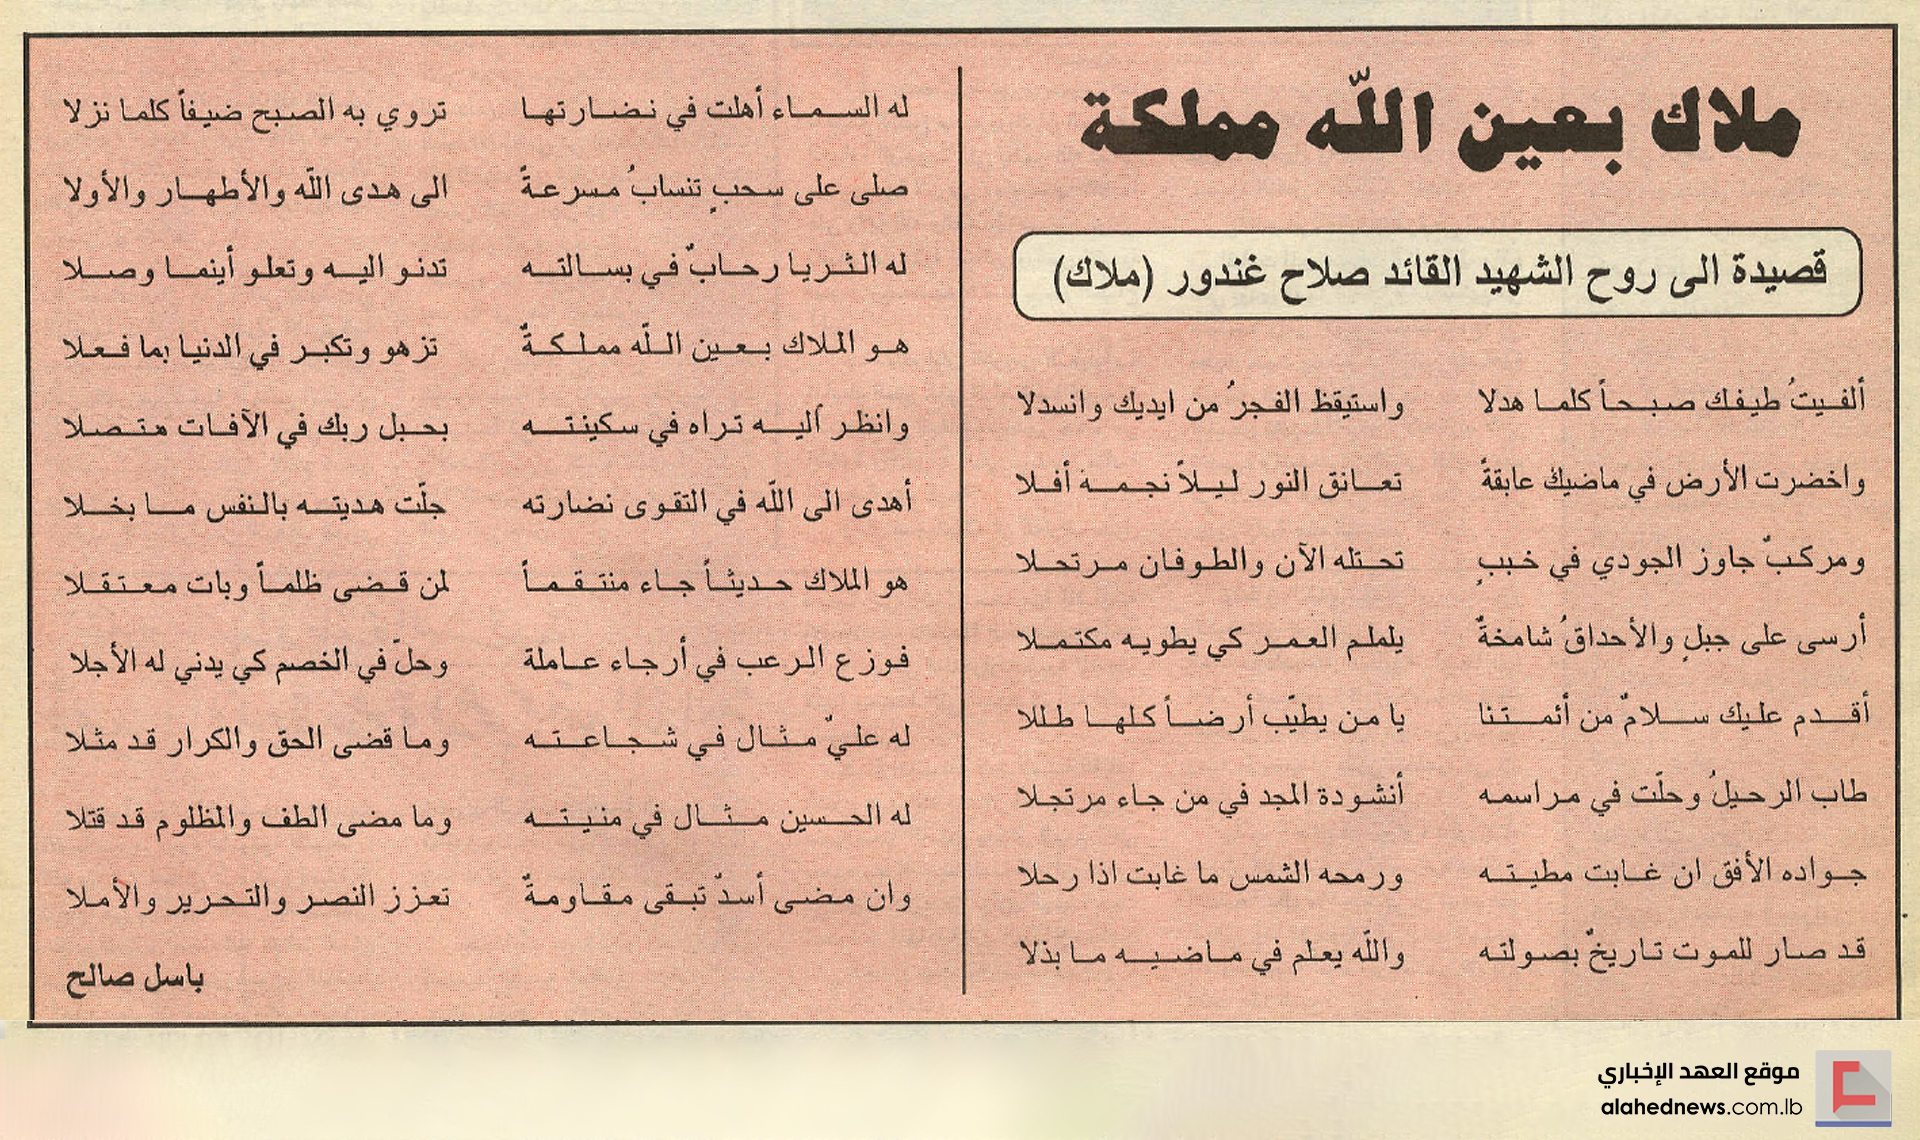 ملاك بعين اللّه مملكة
قصيدة الى روح الشهيد القائد صلاح غندور (ملاك)
ألفيتُ طيفك صبحاً كلما هدلا واستيقظ الفجرُ من ايديك وانسدلا
واخضرت الأرض في ماضيك عابقةً تعانق النور ليلاً نجمة أفلا
ومركبٌ جاوز الجودي في خببٍ تحتله الآن والطوفان مرتحلا
أرسى على جبلٍ والأحداقُ شامخةٌ يلملم العمر كي يطويه مكتملا
أقدم عليك سلامٌ من أئمتنا يا من يطيّب أرضاً كلها طللا
طاب الرحيلُ وحلّت في مراسمه أنشودة المجد في من جاء مرتجلا
جواده الأفق ان غابت مطيته ورمحه الشمس ما غابت اذا رحلا
قد صار للموت تاريخٌ بصولته واللّه يعلم في ماضيه ما بذلا
له السماء أهلت في نضارتها تروي به الصبح ضيفاً كلما نزلا
صلى على سحبٍ تنسابُ مسرعةً الى هدى اللّه والأطهار والأولا
له الثريا رحابٌ في بسالته تدنو اليه وتعلو أينما وصلا
هو الملاك بعين اللّه مملكةٌ تزهو وتكبر في الدنيا بما فعلا
وانظر أليه تراه في سكينته بحبل ربك في الآفات متصلا
أهدى الى اللّه في التقوى نضارته جلّت هديته بالنفس ما بخلا
هو الملاك حديثاً جاء منتقماً لمن قضى ظلماً وبات معتقلا
فوزع الرعب في أرجاء عاملة وحلّ في الخصم كي يدني له الأجلا
له عليٌ مثال في شجاعته وما قضى الحق والكرار قد مثلا
له الحسين مثال في منيته وما مضى الطف والمظلوم قد قتلا
وان مضى أسدٌ تبقى مقاومةٌ تعزز النصر والتحرير والأملا
باسل صالح
موقع العهد الإخباري
alahednews.com.lb